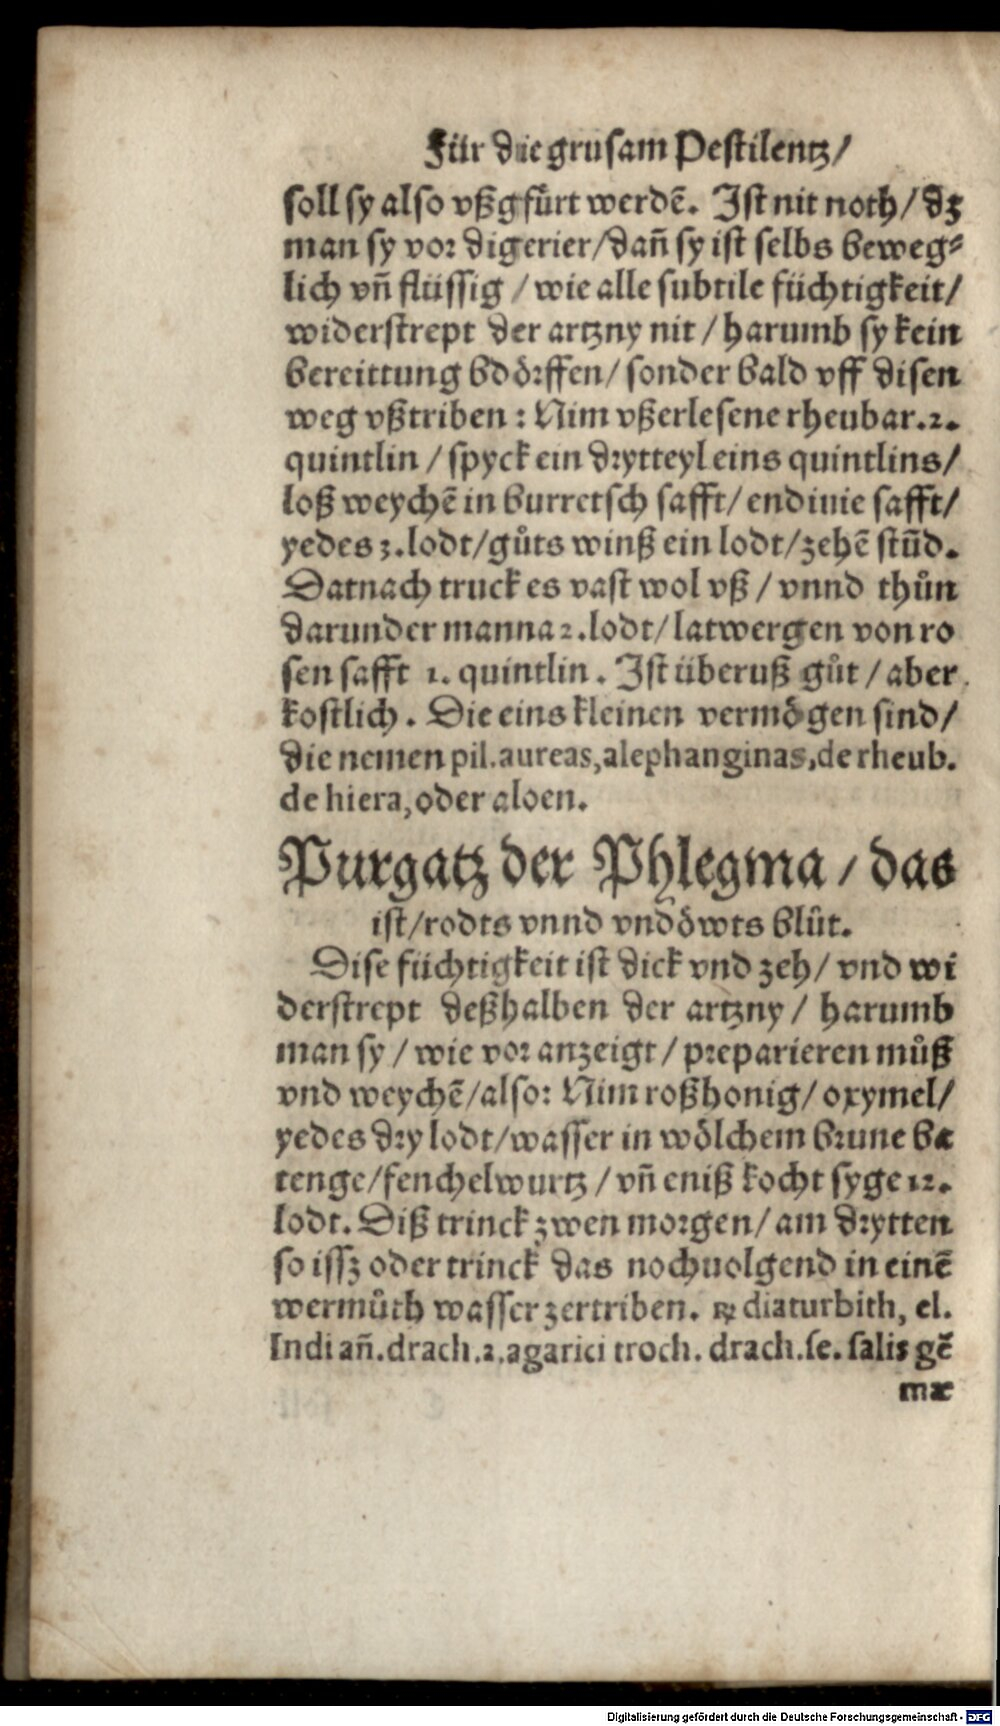 Für die grusam Pestilentz/
soll sy also vßgfürt werdē. Ist nit noth/ dz
man sy vor digerier/dañ sy ist selbs beweg⸗
lich vñ flüssig / wie alle subtile füchtigkeit/
widerstrept der artzny nit / harumb sy kein
bereittung bdörffen/ sonder bald vff disen
weg vßtriben : Nim vßerlesene rheubar.2.
quintlin / spyck ein drytteyl eins quintlins/
loß weychē in burretsch safft/ endiuie safft/
yedes 3.lodt/gůts winß ein lodt/zehē stūd.
Datnach truck es vast wol vß / vnnd thůn
darunder manna 2.lodt/ latwergen von ro
sen safft 1. quintlin. Ist überuß gůt / aber
kostlich. Die eins kleinen vermögen sind/
die nemen pil.aureas,alephanginas,de rheub.
de hiera,oder aloen.
Purgatz der Phlegma / das
ist/rodts vnnd vndöwts blůt.
Dise füchtigkeit ist dick vnd zeh/ vnd wi
derstrept deßhalben der artzny / harumb
man sy / wie vor anzeigt / preparieren můß
vnd weychē/also: Nim roßhonig/ oxymel/
yedes dry lodt/wasser in wölchem brune be
tenge/fenchelwurtz / vñ eniß kocht syge 12.
lodt. Diß trinck zwen morgen/ am drytten
so issz oder trinck das nochuolgend in einē
wermůth wasser zertriben. ℞ diaturbith, el.
Indi añ.drach.2.agarici troch. drach.se. salis gē
mæ
Digitalisierung gefördert durch die Deutsche Forschungsgemeinschaft - DFG